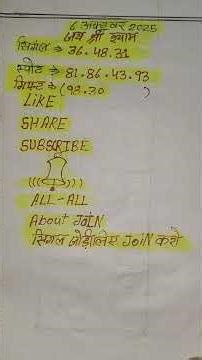 6 अक्टूबर 2025
जय श्री श्याम
सिंगल → 36.48.31
स्पोट → 81.86.43.93
गिफ्ट → (98.30 )
LIKE
SHARE
SUBSCRIBE
ALL-ALL
About JOIN
सिंगल जोड़ी लिए JOIN करो